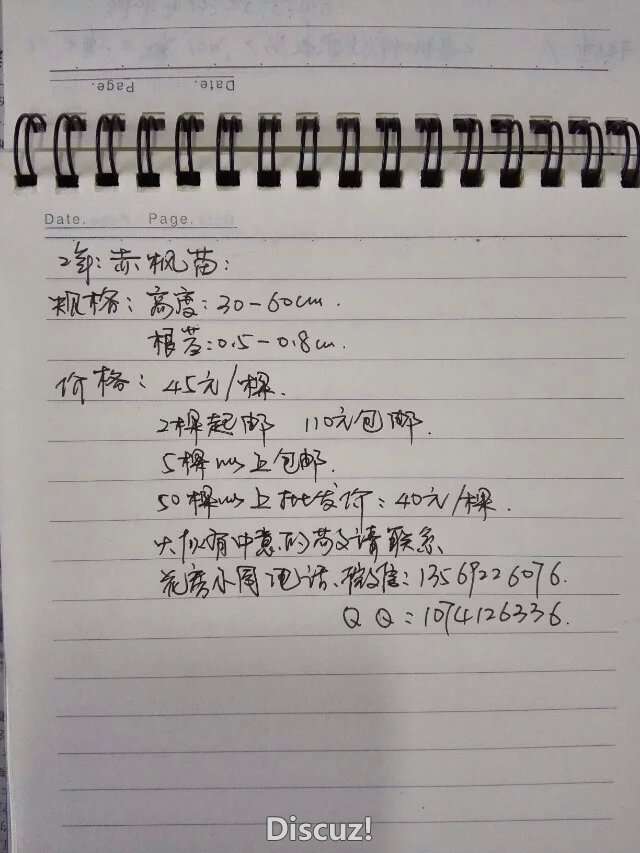 Date.
Page.
Date. Page.
2年:赤枫苗:
规格:高度:30-60cm.
根茎:0.5-0.8cm.
价格:45元/棵.
2棵起邮 110元包邮.
5棵以上包邮.
50棵以上批发价:40元/棵.
有中意的苗子请联系
花房小周 电话、微信:13569226076.
QQ:1074126336.
Discuz!